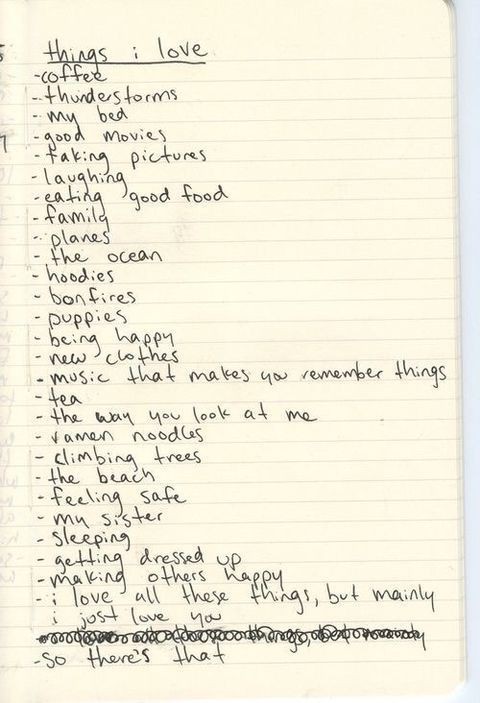 things i love
-coffee
-thunderstorms
-my bed
-good movies
-taking pictures
-laughing
-eating good food
-family
-planes
-the ocean
-hoodies
-bonfires
-puppies
-being happy
-new clothes
-music that makes you remember things
-tea
-the way you look at me
-ramen noodles
-climbing trees
-the beach
-feeling safe
-my sister
-sleeping
-getting dressed up
-making others happy
-i love all these things, but mainly
i just love you
-so there's that